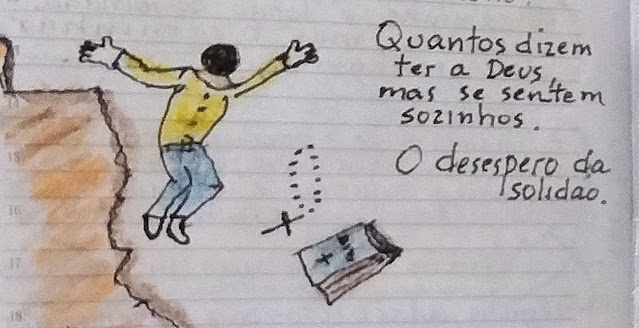 Quantos dizem
ter a Deus,
mas se sentem
sozinhos.
O desespero da
solidão.